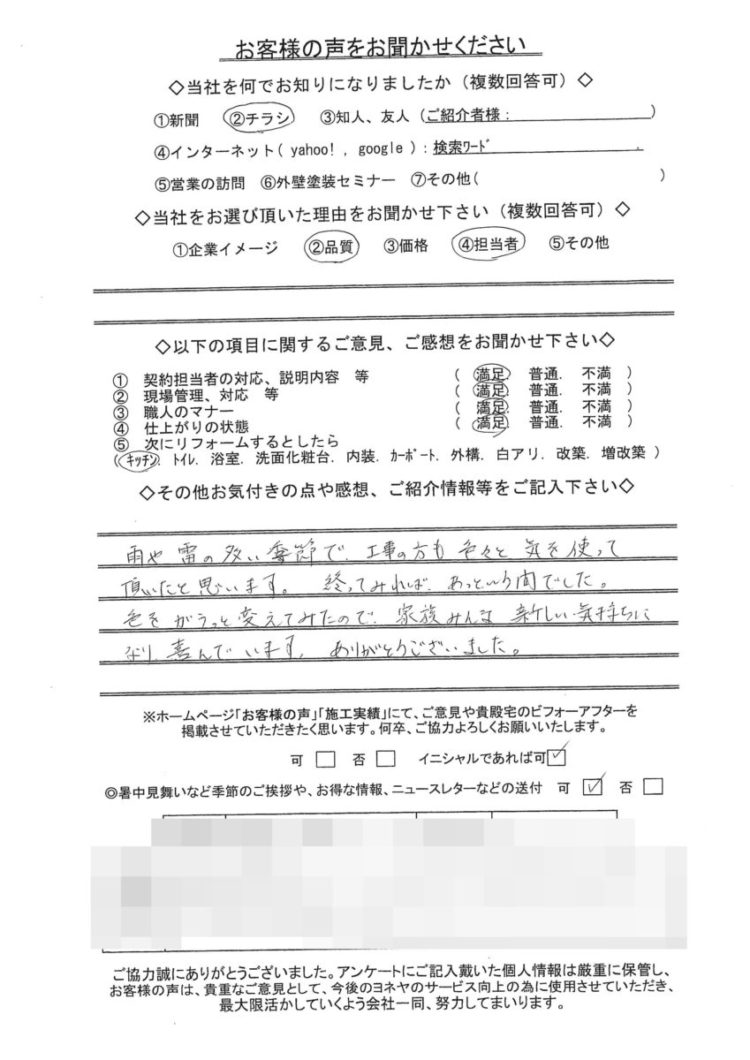 お客様の声をお聞かせください
◇当社を何でお知りになりましたか（複数回答可）◇
①新聞 ②チラシ ③知人、友人（ご紹介者様： ）
④インターネット( yahoo! , google ) : 検索ﾜｰﾄﾞ .
⑤営業の訪問 ⑥外壁塗装セミナー ⑦その他( )
◇当社をお選び頂いた理由をお聞かせ下さい（複数回答可）◇
①企業イメージ ②品質 ③価格 ④担当者 ⑤その他
◇以下の項目に関するご意見、ご感想をお聞かせ下さい◇
① 契約担当者の対応、説明内容 等 （ 満足. 普通. 不満 ）
② 現場管理、対応 等 （ 満足. 普通. 不満 ）
③ 職人のマナー （ 満足. 普通. 不満 ）
④ 仕上がりの状態 （ 満足. 普通. 不満 ）
⑤ 次にリフォームするとしたら
（ ｷｯﾁﾝ. ﾄｲﾚ. 浴室. 洗面化粧台. 内装. ｶｰﾎﾟｰﾄ. 外構. 白アリ. 改築. 増改築 ）
◇その他お気付きの点や感想、ご紹介情報等をご記入下さい◇
雨や雷の多い季節で、工事の方も色々と気を使って
頂いたと思います。 終ってみれば、あっという間でした。
色をがらっと変えてみたので、家族みんな新しい気持ちに
なり、喜んでいます。ありがとうございました。
※ホームページ「お客様の声」「施工実績」にて、ご意見や貴殿宅のビフォーアフターを
掲載させていただきたく思います。何卒、ご協力よろしくお願いいたします。
可 □ 否 □ イニシャルであれば可☑
◎暑中見舞いなど季節のご挨拶や、お得な情報、ニュースレターなどの送付 可 ☑ 否 □
ご協力誠にありがとうございました。アンケートにご記入戴いた個人情報は厳重に保管し、
お客様の声は、貴重なご意見として、今後のヨネヤのサービス向上の為に使用させていただき、
最大限活かしていくよう会社一同、努力してまいります。